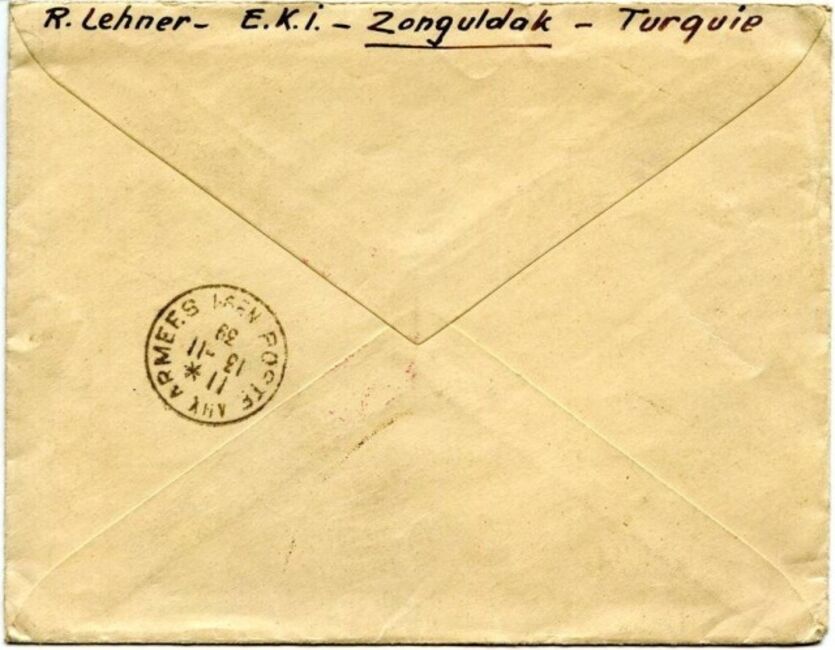 R. Lehner - E.K.i. - Zonguldak - Turquie
POSTE AUX ARMEES
11 *
13 -11
39